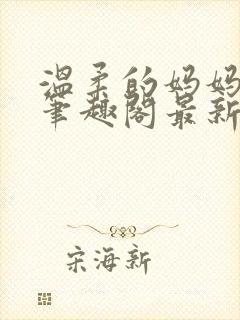 温柔的妈妈
笔趣阁最新
宋海新